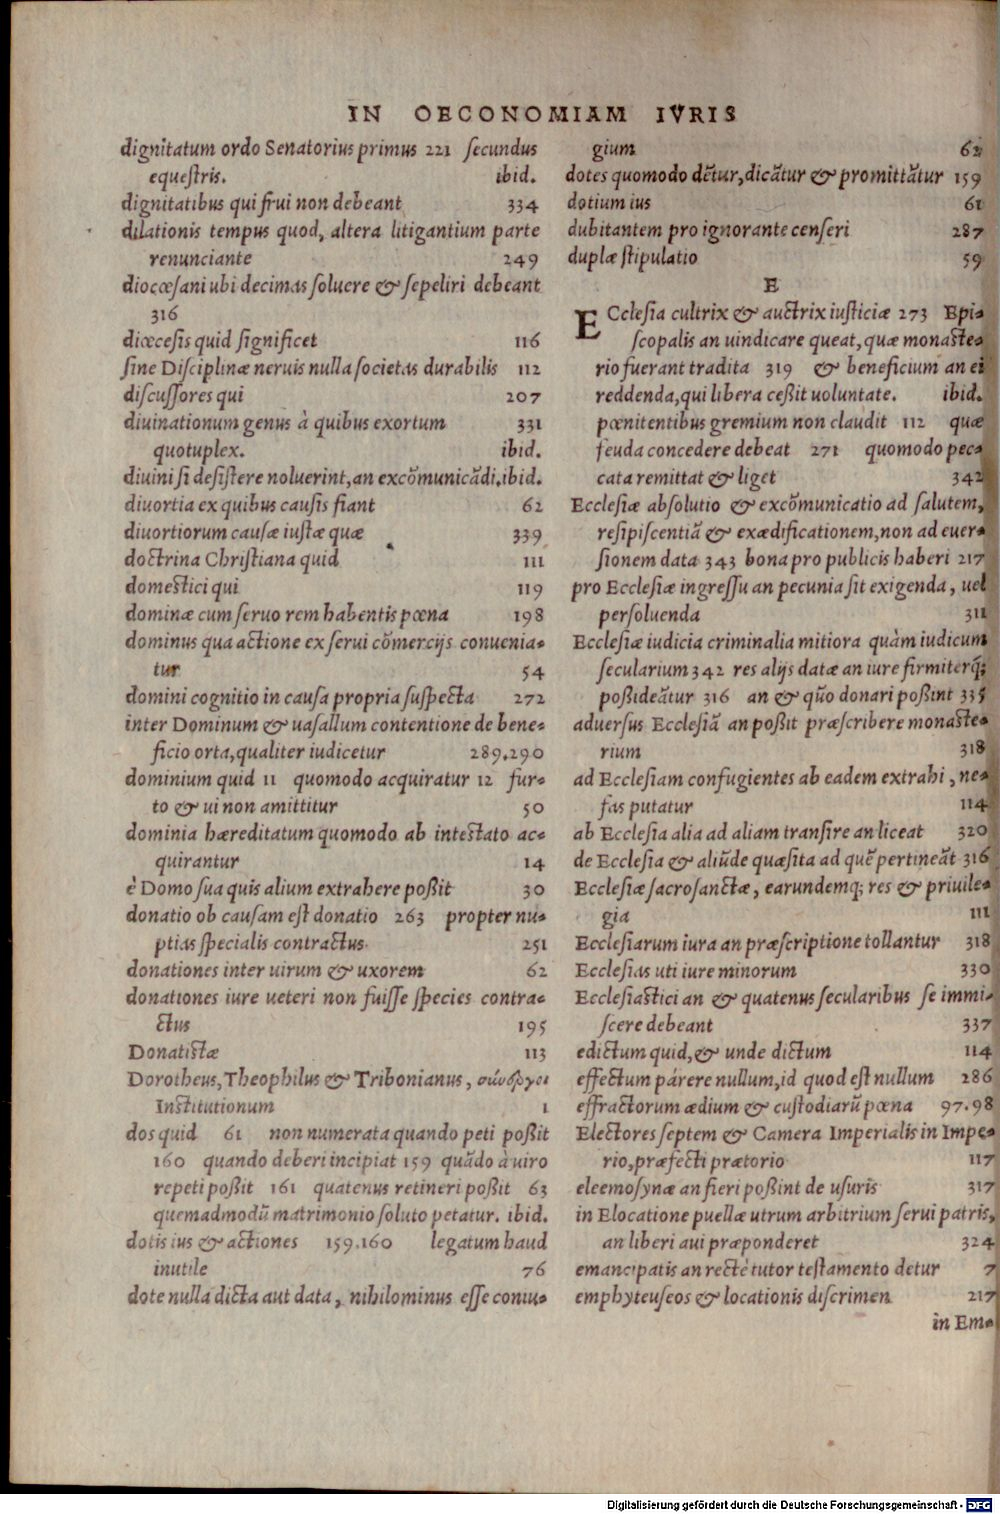 IN OECONOMIAM IVRIS
dignitatum ordo Senatorius primus 221 ſecundus
equeſtris. ibid.
dignitatibus qui frui non debeant 334
dilationis tempus quod, altera litigantium parte
renunciante 249
diocœſani ubi decimas ſoluere & ſepeliri debeant
316
diœceſis quid ſignificet 116
ſine Diſciplinæ neruis nulla ſocietas durabilis 112
diſcuſſores qui 207
diuinationum genus à quibus exortum 331
quotuplex. ibid.
diuini ſi deſiſtere noluerint, an excõmunicãdi. ibid.
diuortia ex quibus cauſis fiant 62
diuortiorum cauſæ iuſtæ quæ 339
doctrina Chriſtiana quid 111
domeſtici qui 119
dominæ cum ſeruo rem habentis pœna 198
dominus qua actione ex ſerui cõmercijs conuenia-
tur 54
domini cognitio in cauſa propria ſuſpecta 272
inter Dominum & uaſallum contentione de bene-
ficio orta, qualiter iudicetur 289.290
dominium quid 11 quomodo acquiratur 12 fur-
to & ui non amittitur 50
dominia hæreditatum quomodo ab inteſtato ac-
quirantur 14
è Domo ſua quis alium extrahere poßit 30
donatio ob cauſam eſt donatio 263 propter nu-
ptias ſpecialis contractus 251
donationes inter uirum & uxorem 62
donationes iure ueteri non fuiſſe ſpecies contra-
ctus 195
Donatiſtæ 113
Dorotheus, Theophilus & Tribonianus, σύνεργοι
Inſtitutionum 1
dos quid 61 non numerata quando peti poßit
160 quando deberi incipiat 159 quãdo à uiro
repeti poßit 161 quatenus retineri poßit 63
quemadmodũ matrimonio ſoluto petatur. ibid.
dotis ius & actiones 159.160 legatum haud
inutile 76
dote nulla dicta aut data, nihilominus eſſe coniu-
gium 62
dotes quomodo dẽtur, dicãtur & promittãtur 159
dotium ius 61
dubitantem pro ignorante cenſeri 287
duplæ ſtipulatio 59
E
ECcleſia cultrix & auctrix iuſticiæ 273 Epi-
ſcopalis an uindicare queat, quæ monaſte-
rio fuerant tradita 319 & beneficium an ei
reddenda, qui libera ceßit uoluntate. ibid.
pœnitentibus gremium non claudit 112 quæ
feuda concedere debeat 271 quomodo pec-
cata remittat & liget 342
Eccleſiæ abſolutio & excõmunicatio ad ſalutem,
reſipiſcentiã & exædificationem, non ad euer-
ſionem data 343 bona pro publicis haberi 217
pro Eccleſiæ ingreſſu an pecunia ſit exigenda, uel
perſoluenda 311
Eccleſiæ iudicia criminalia mitiora quàm iudicum
ſecularium 342 res alijs datæ an iure firmiterq;
poßideãtur 316 an & quo donari poßint 335
aduerſus Eccleſiã an poßit præſcribere monaſte-
rium 318
ad Eccleſiam confugientes ab eadem extrahi, ne-
fas putatur 114
ab Eccleſia alia ad aliam tranſire an liceat 320
de Eccleſia & aliũde quæſita ad quẽ pertineãt 316
Eccleſiæ ſacroſanctæ, earundemq; res & priuile-
gia 111
Eccleſiarum iura an præſcriptione tollantur 318
Eccleſias uti iure minorum 330
Eccleſiaſtici an & quatenus ſecularibus ſe immi-
ſcere debeant 337
edictum quid, & unde dictum 114
effectum parere nullum, id quod eſt nullum 286
effractorum ædium & cuſtodiarũ pœna 97.98
Electores ſeptem & Camera Imperialis in Impe-
rio, præfecti prætorio 117
eleemoſynæ an fieri poßint de uſuris 317
in Elocatione puellæ utrum arbitrium ſerui patris,
an liberi aui præponderet 324
emancipatis an rectè tutor teſtamento detur 7
emphyteuſeos & locationis diſcrimen 217
in Em-
Digitalisierung gefördert durch die Deutsche Forschungsgemeinschaft - DFG